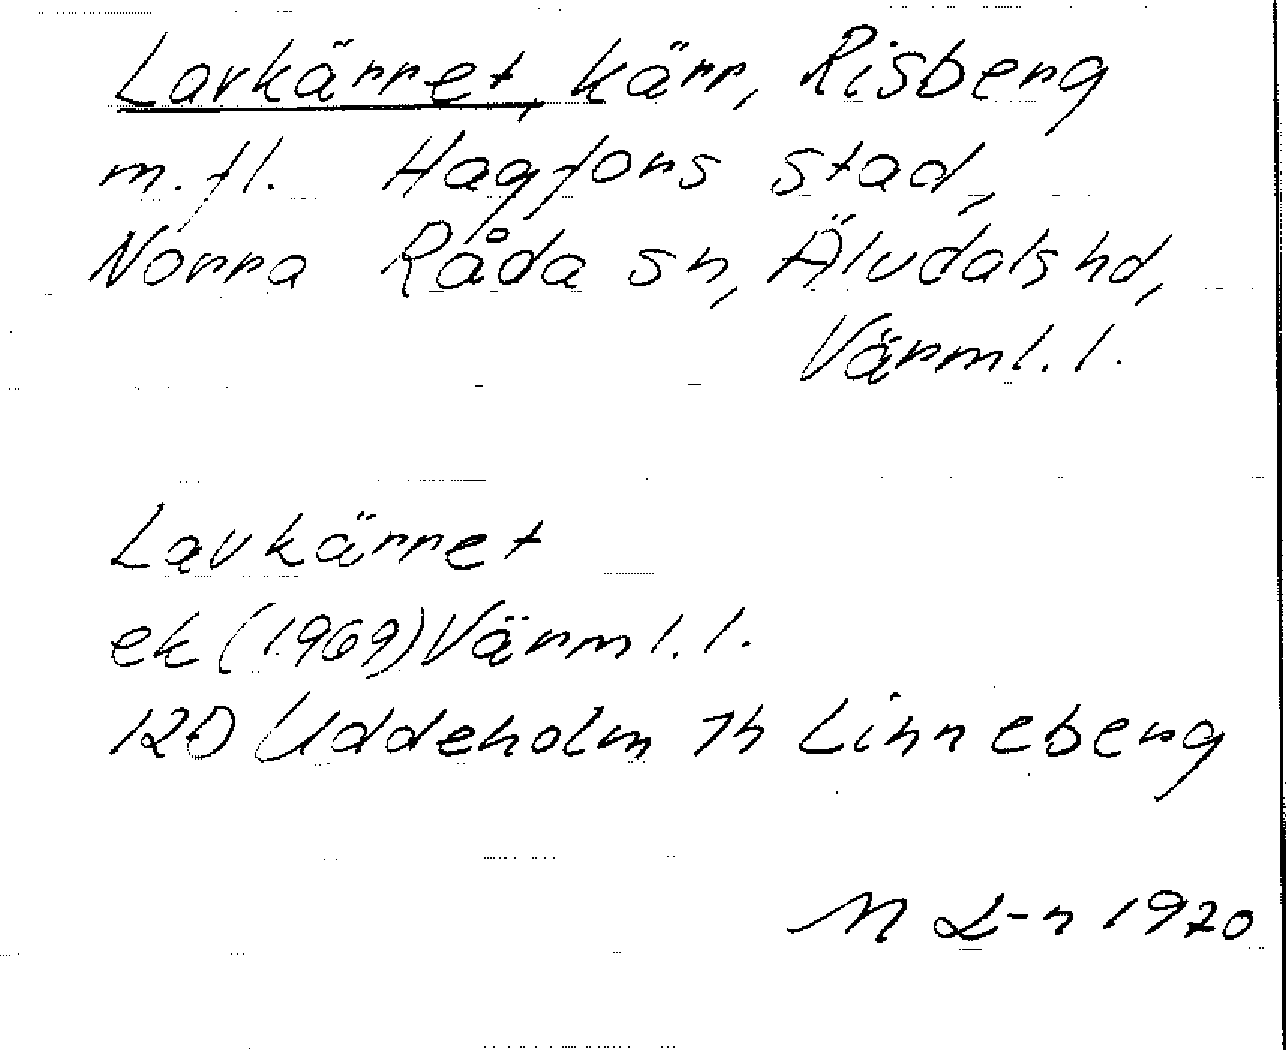 Lavkärret, kärr, Risberg
m.fl. Hagfors stad,
Norra Råda sn, Älvdals hd,
Värml. l.
Lavkärret
ek (1969) Värml. l.
12D Uddeholm 7h Linneberg
M L-n 1970